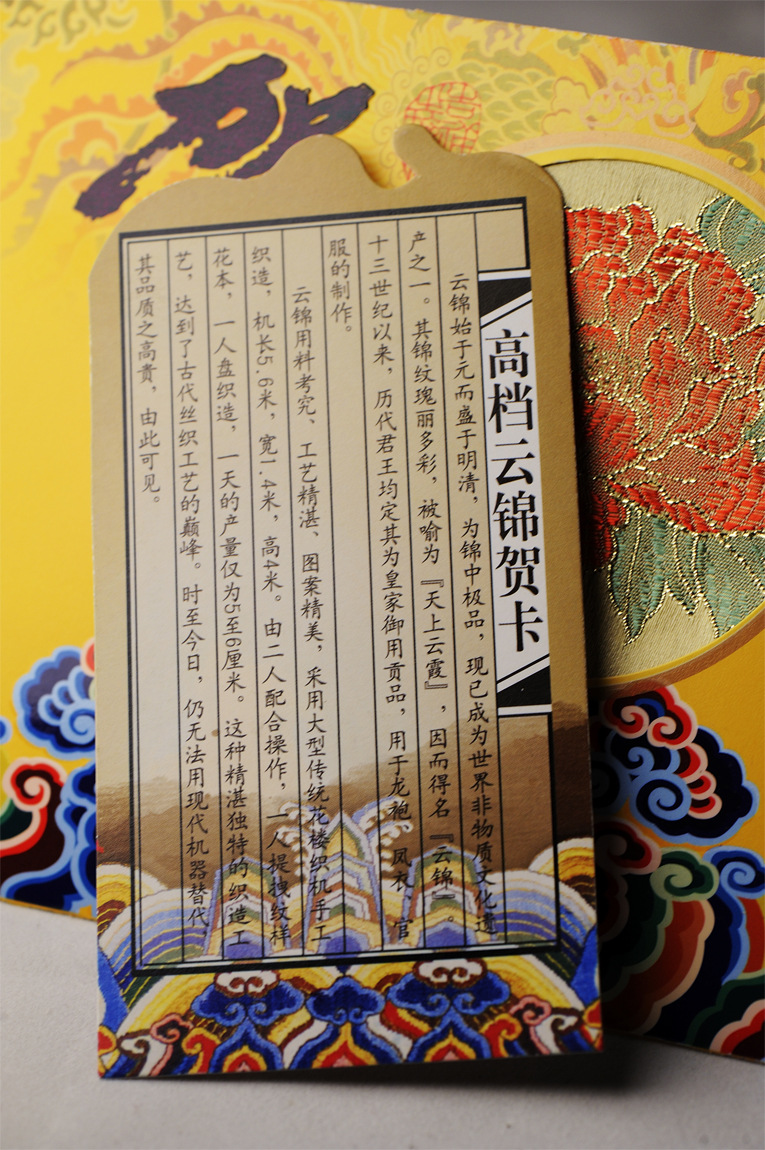 高档云锦贺卡
云锦始于元而盛于明清，为锦中极品，现已成为世界非物质文化遗
产之一。其锦纹瑰丽多彩，被喻为『天上云霞』，因而得名『云锦』。
十三世纪以来，历代君王均定其为皇家御用贡品，用于龙袍、凤衣、官
服的制作。
云锦用料考究、工艺精湛、图案精美，采用大型传统花楼织机手工
织造，机长5.6米，宽1.4米，高4米。由二人配合操作，一人提拽纹样
花本，一人盘织造，一天的产量仅为5至6厘米。这种精湛独特的织造工
艺，达到了古代丝织工艺的巅峰。时至今日，仍无法用现代机器替代，
其品质之高贵，由此可见。